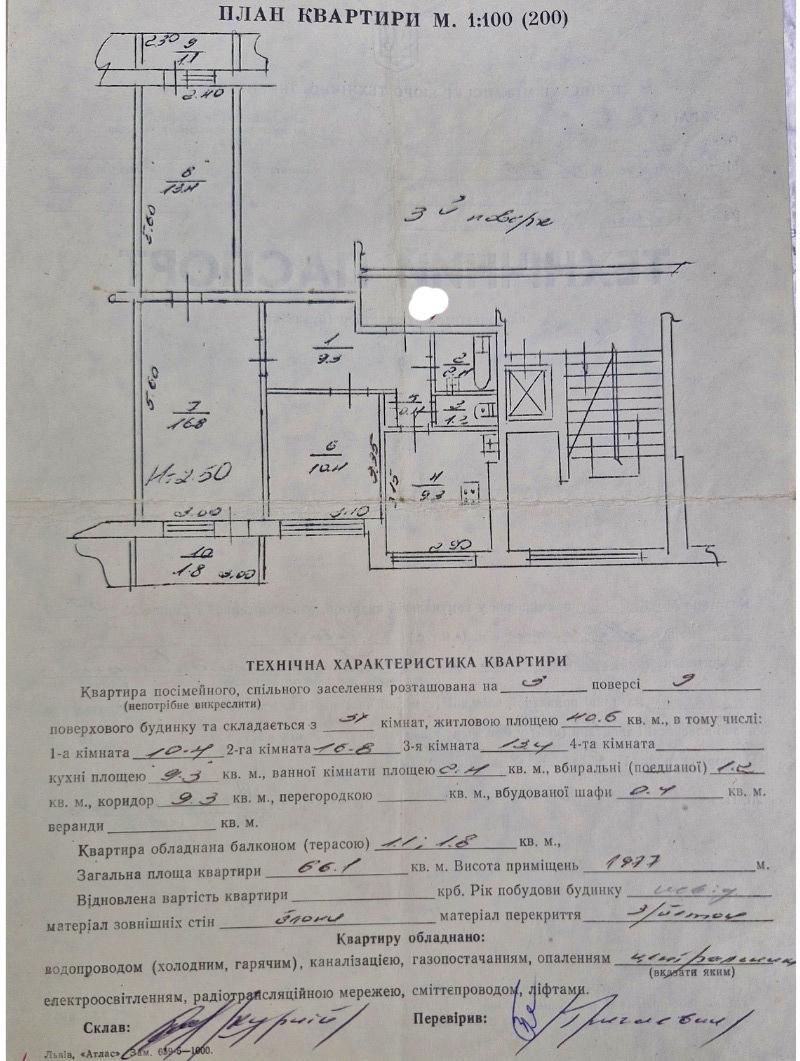 ПЛАН КВАРТИРИ М. 1:100 (200)
2.30 9
1.1
2.40
8
13.4
5.60
3й поверх
1
9.3
2
2.4
5.60
7
16.8
5
0.4
3
1.2
6
10.4
3.35
4
9.3
3.15
H=2.50
3.00
3.10
2.90
10
1.8
3.00
ТЕХНІЧНА ХАРАКТЕРИСТИКА КВАРТИРИ
Квартира посімейного, спільного заселення розташована на 3 поверсі 9
(непотрібне викреслити)
поверхового будинку та складається з 3х кімнат, житловою площею 40.6 кв. м., в тому числі:
1-а кімната 10.4 2-га кімната 16.8 3-я кімната 13.4 4-та кімната
кухні площею 9.3 кв. м., ванної кімнати площею 2.4 кв. м., вбиральні (поєднаної) 1.2
кв. м., коридор 9.3 кв. м., перегородкою кв. м., вбудованої шафи 0.4 кв. м.
веранди кв. м.
Квартира обладнана балконом (терасою) 1.1; 1.8 кв. м.,
Загальна площа квартири 66.1 кв. м. Висота приміщень 1977 м.
Відновлена вартість квартири крб. Рік побудови будинку
матеріал зовнішніх стін блоки матеріал перекриття з/бетон
Квартиру обладнано:
водопроводом (холодним, гарячим), каналізацією, газопостачанням, опаленням центральним
(вказати яким)
електроосвітленням, радіотрансляційною мережею, сміттєпроводом, ліфтами.
Склав: Перевірив:
Львів, «Атлас». Зам. 659-5—1000.